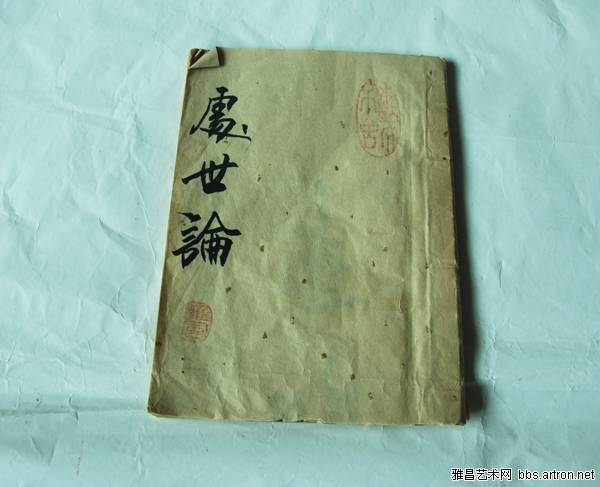 處世論
雅昌艺术网 bbs.artron.net